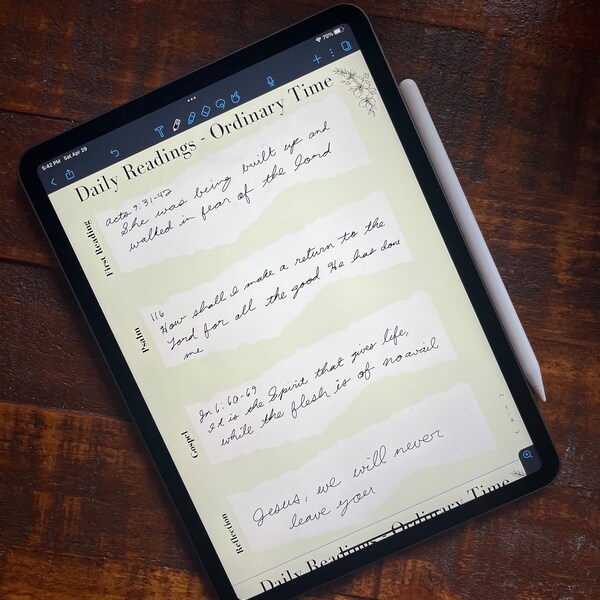 5:42 PM Sat Apr 29
78%
Daily Readings - Ordinary Time
First Reading
Acts 9:31-42
She was being built up and
walked in fear of the Lord
Psalm
116
How shall I make a return to the
Lord for all the good He has done
me
Gospel
Jn 6:60-69
It is the Spirit that gives life,
while the flesh is of no avail
Reflection
Jesus, we will never
leave you
Daily Readings - Ordinary Time